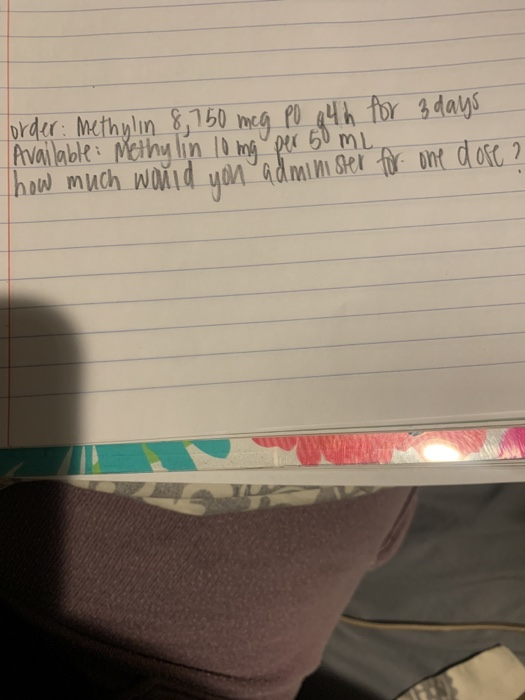 order: Methylin 8,750 mcg PO q4h for 3 days
Available: Methylin 10 mg per 50 mL
how much would you administer for one dose?